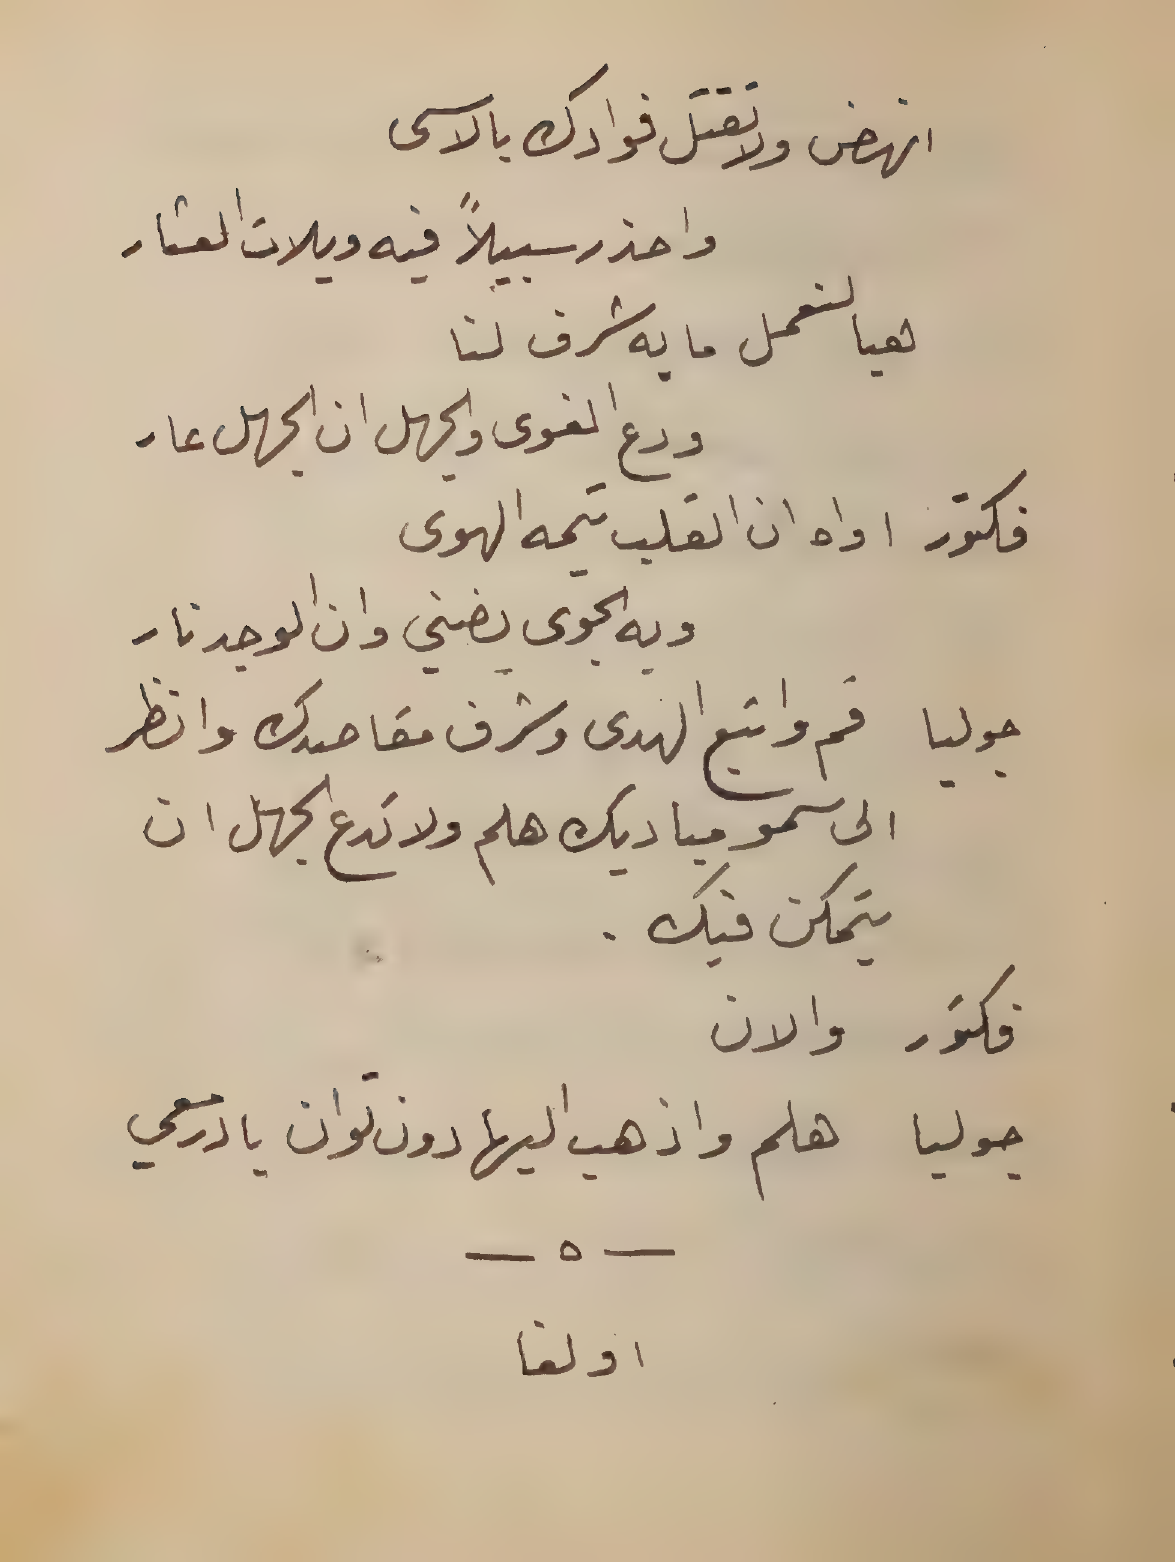 انهض ولا تقتل فوادك بالاسى
واحذر سبيلاً فيه ويلات العثار
هيا لنعمل ما به شرف لنا
ودع الغوى والجهل ان الجهل عار
فكتور اواه ان القلب تيمه الهوى
وبه الجوى يضنني وان الوجد نار
جوليا قم واتبع الهدى وشرف مقاصدك وانظر
الى سمو مباديك هلم ولا تدع الجهل ان
يتمكن فيك .
فكتور والان
جوليا هلم واذهب اليها دون توان يا در معي
— ٥ —
اولغا